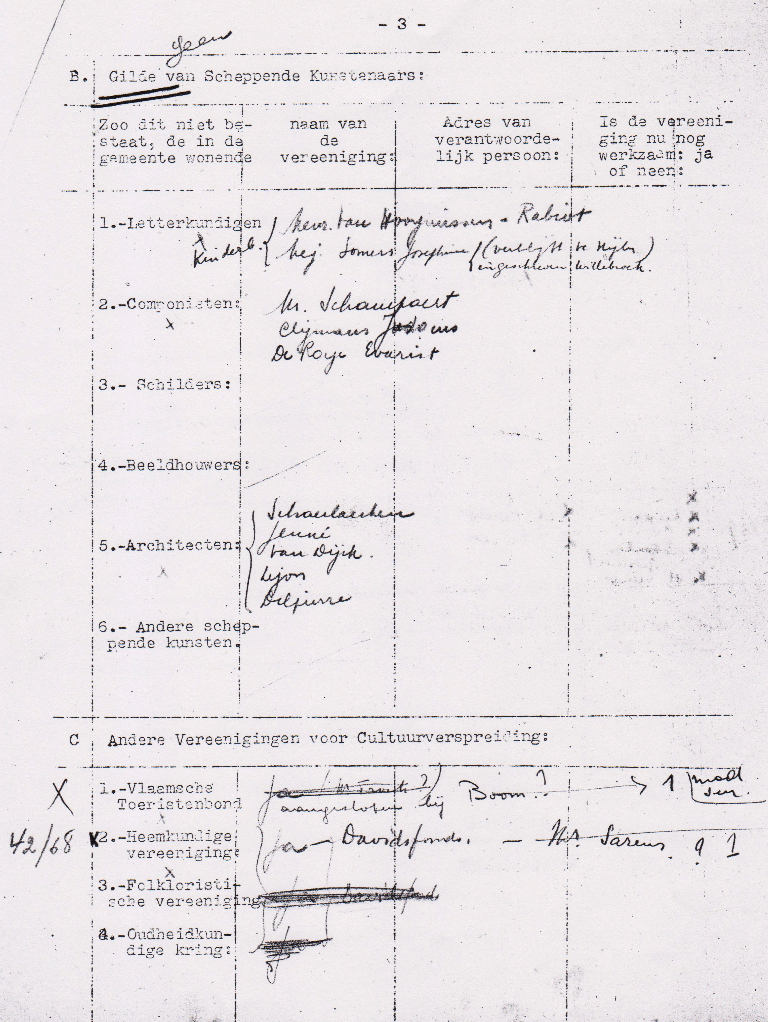 - 3 -
geen
B. Gilde van Scheppende Kunstenaars:
Zoo dit niet be-
staat, de in de
gemeente wonende
naam van
de
vereeniging:
Adres van
verantwoorde-
lijk persoon:
Is de vereeni-
ging nu nog
werkzaam: ja
of neen:
1.-Letterkundigen
Kinderb.
Mevr. Van - Rabiet
Mej. Somers Josephine (verblijft te Nijlen)
ingeschreven Willebroek.
2.-Componisten:
x
Mr. Schampaert
Clijmans
De Roye Evarist
3.- Schilders:
4.-Beeldhouwers:
5.-Architecten:
x
Schaerlaecken
Jenné
Van Dijck.
Lijon
Delpierre
6.- Andere schep-
pende kunsten.
C Andere Vereenigingen voor Cultuurverspreiding:
X
1.-Vlaamsche
Toeristenbond
Ja
aangesloten bij Boom? 1
42/68
2.-Heemkundige
vereeniging:
x
Ja - Davidsfonds. - Mr. Sarens ? 1
3.-Folkloristi-
sche vereeniging
Ja Davidsfonds
4.-Oudheidkun-
dige kring: